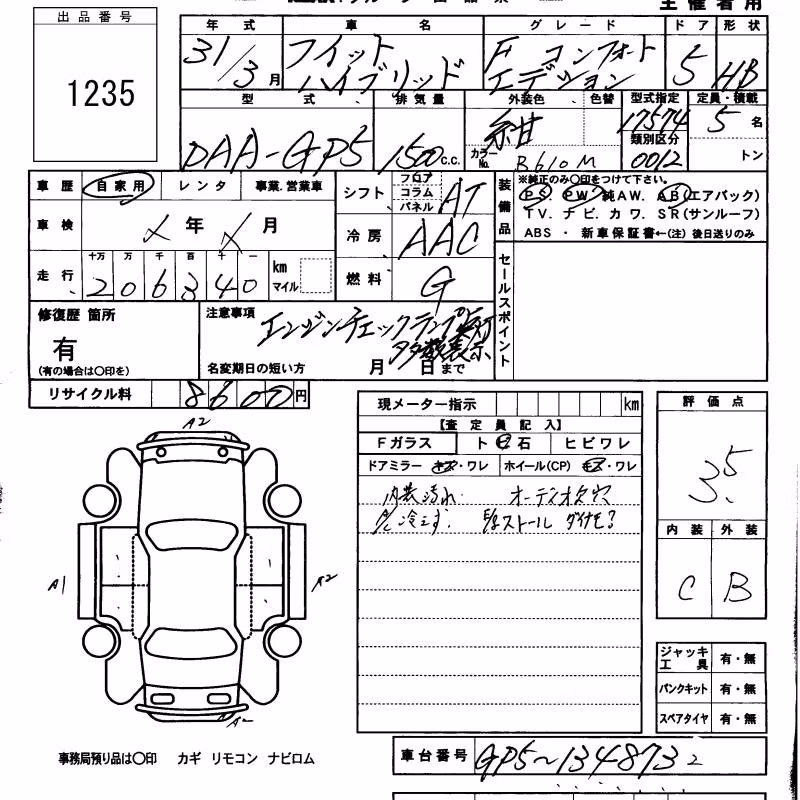 主催者用
出品番号
1235
年式 車名 グレード ドア 形状
31/3月 フィット ハイブリッド F コンフォート エディション 5 HB
型式 排気量 外装色 色替 型式指定 定員・積載
DAA-GP5 1500 c.c. 紺 17574 5名
カラーNo. B610M 類別区分 0012 トン
車歴 自家用 レンタ 事業.営業車
車検 メ年メ月
走行 十万 万 千 百 十 一 km マイル
206340
シフト フロア コラム パネル AT
冷房 AAC
燃料 G
装備品 ※純正のみ〇印をつけて下さい。
PS. PW. 純AW. AB(エアバック)
TV. ナビ. カワ. SR(サンルーフ)
ABS ・ 新車保証書←(注) 後日送りのみ
セールスポイント
修復歴 箇所
有
(有の場合は〇印を)
注意事項 エンジンチェックランプ点灯
多数表示
名変期日の短い方 月 日まで
リサイクル料 8600円
現メーター指示 km
【査定員記入】
Fガラス ト ビ 石 ヒビワレ
ドアミラー キズ・ワレ ホイール(CP) キズ・ワレ
内装汚れ. オーディオ欠穴
A/C冷えず. E/gストール ダイナモ?
評価点
3.5
内装 外装
C B
A2
A1
A2
A2
ジャッキ工具 有・無
パンクキット 有・無
スペアタイヤ 有・無
事務局預り品は〇印 カギ リモコン ナビロム
車台番号 GP5~1348732